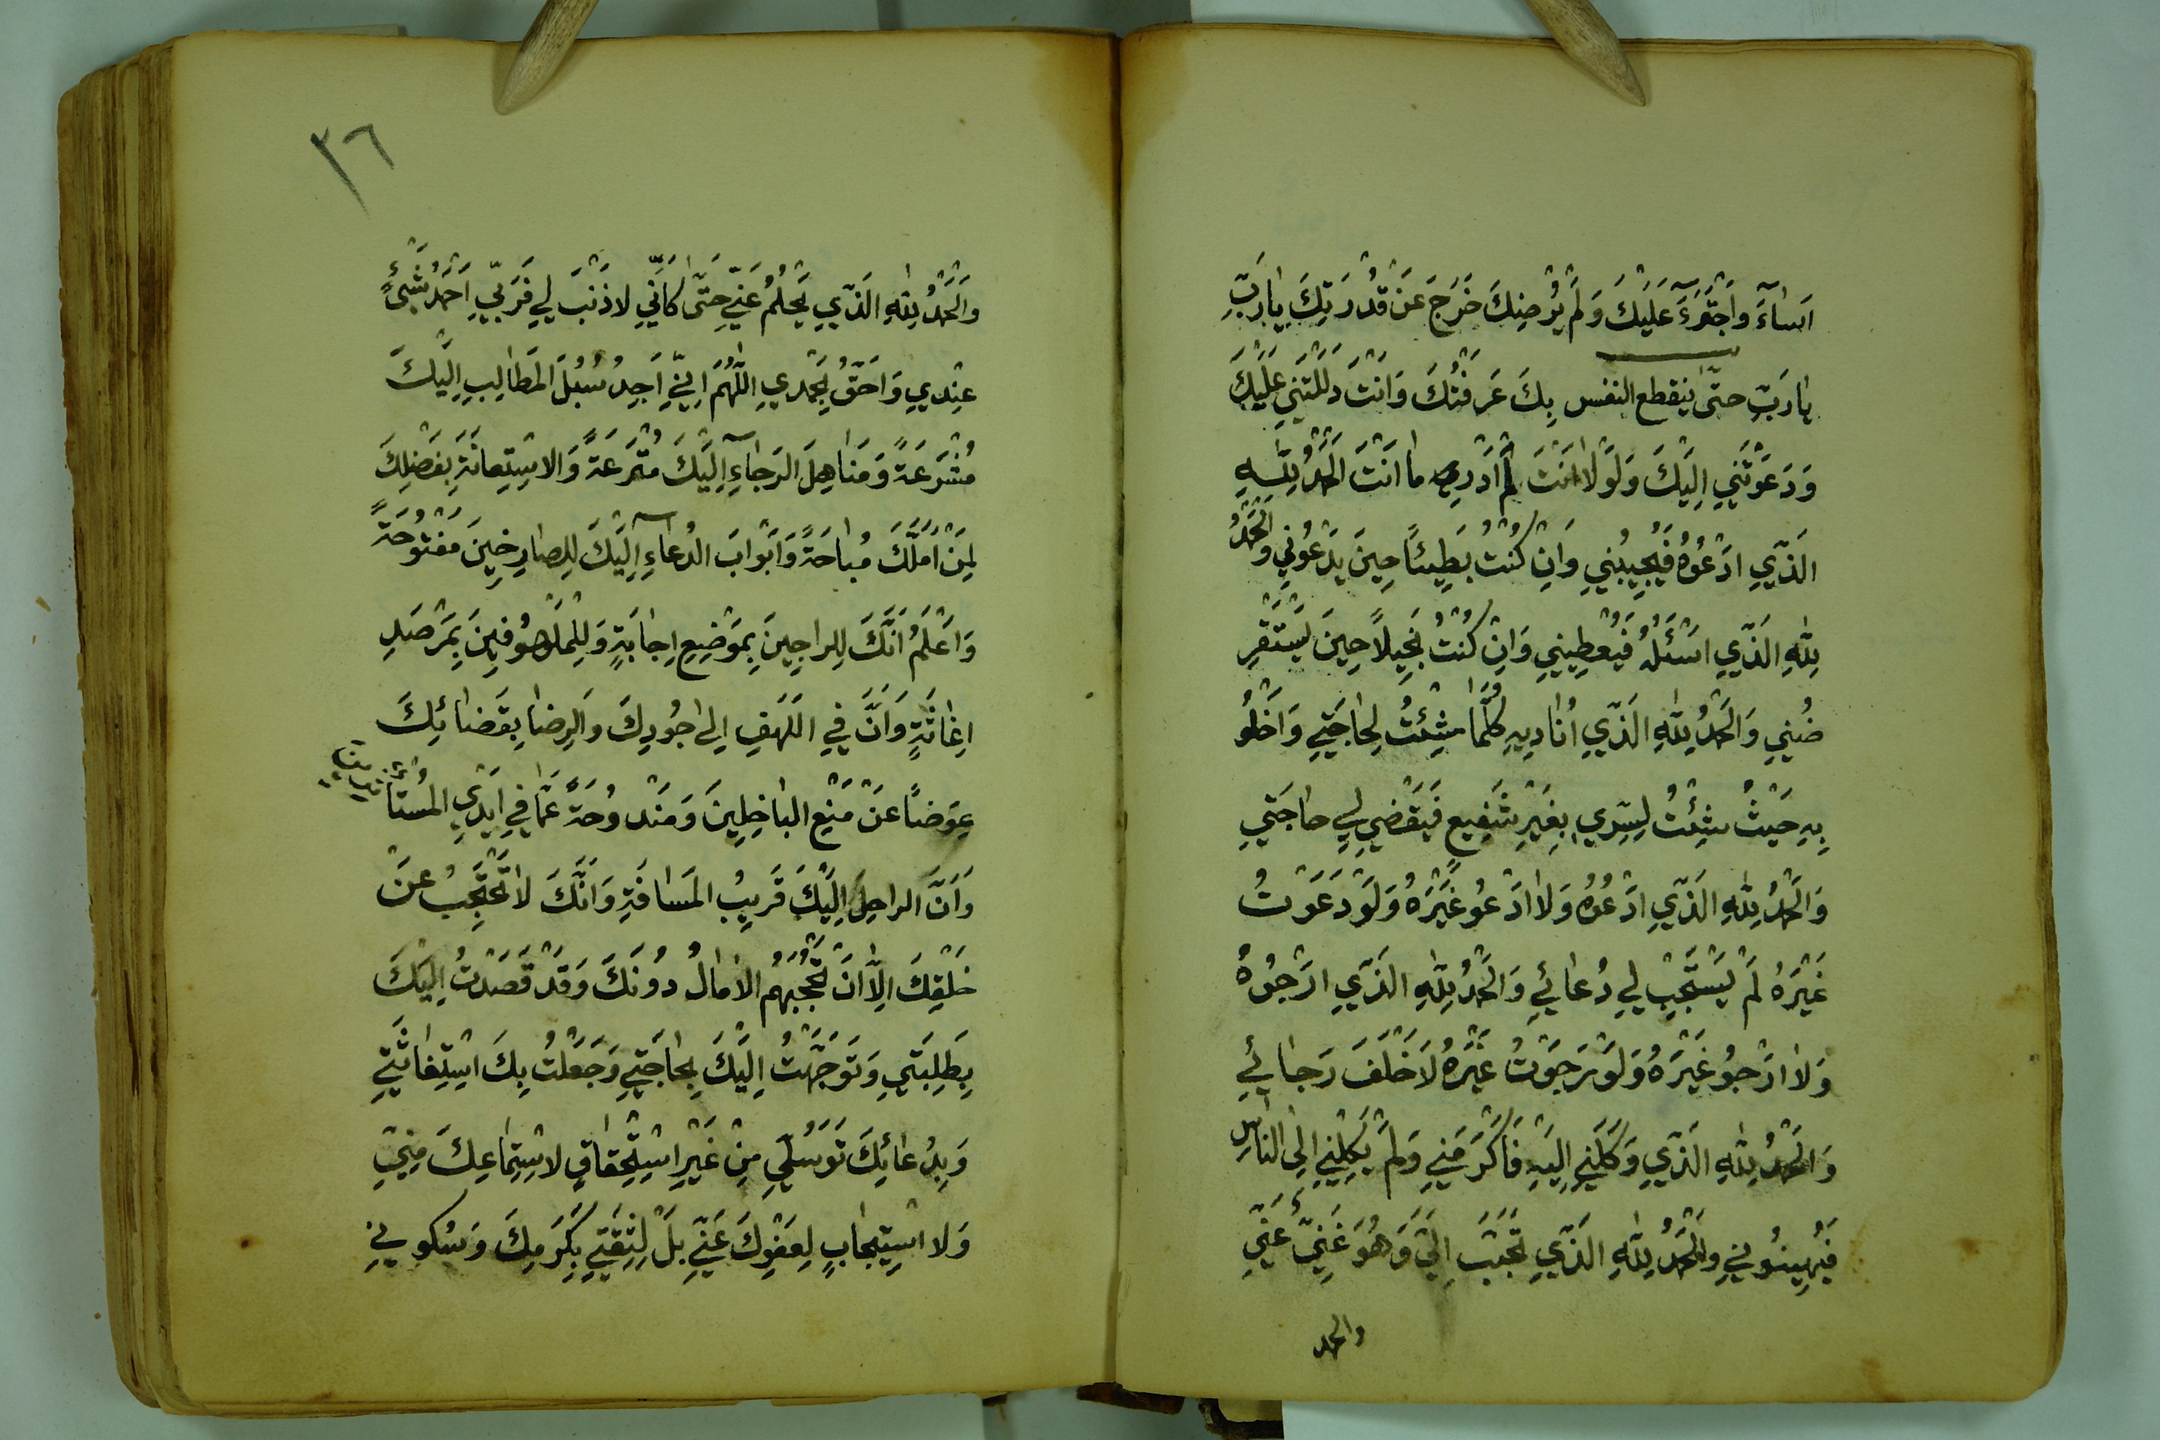 اَسٰاۤءَ وَاجْتَرَءَ عَلَيْكَ وَلَمْ يُرْضِكَ خَرَجَ عَنْ قُدْرَتِكَ يٰارَبِّ
يٰارَبِّ حتّٰى ينقطع النفس بِكَ عَرَفْتُكَ وَاَنْتَ دَلَلْتَنِي عَلَيْكَ
وَدَعَوْتَنِي اِلَيْكَ وَلَوْلٰا اَنْتَ لَمْ اَدْرِ مٰا اَنْتَ اَلْحَمْدُ لِلّٰهِ
الَّذِي اَدْعُوهُ فَيُجِيبُنِي وَاِنْ كُنْتُ بَطِيئًا حِينَ يَدْعُونِي وَالْحَمْدُ
لِلّٰهِ الَّذِي اَسْئَلُهُ فَيُعْطِينِي وَاِنْ كُنْتُ بَخِيلًا حِينَ يَسْتَقْرِ
ضُنِي وَالْحَمْدُ لِلّٰهِ الَّذِي اُنٰادِيهِ كُلَّمٰا شِئْتُ لِحٰاجَتِي وَاَخْلُو
بِهِ حَيْثُ شِئْتُ لِسِرِّي بِغَيْرِ شَفِيعٍ فَيَقْضِي لِي حٰاجَتِي
وَالْحَمْدُ لِلّٰهِ الَّذِي اَدْعُوهُ وَلٰا اَدْعُو غَيْرَهُ وَلَوْ دَعَوْتُ
غَيْرَهُ لَمْ يَسْتَجِبْ لِي دُعٰائِي وَالْحَمْدُ لِلّٰهِ الَّذِي اَرْجُوهُ
وَلٰا اَرْجُو غَيْرَهُ وَلَوْ رَجَوْتُ غَيْرَهُ لَاَخْلَفَ رَجٰائِي
وَالْحَمْدُ لِلّٰهِ الَّذِي وَكَلَنِي اِلَيْهِ فَاَكْرَمَنِي وَلَمْ يَكِلْنِي اِلَى النّٰاسِ
فَيُهِينُونِي وَالْحَمْدُ لِلّٰهِ الَّذِي تَحَبَّبَ اِلَيَّ وَهُوَ غَنِيٌّ عَنِّي
والحمد
٣٦
وَالْحَمْدُ لِلّٰهِ الَّذِي يَحْلُمُ عَنِّي حَتّٰى كَاَنِّي لا ذَنْبَ لِي فَرَبِّي اَحْمَدُ شَيْئٍ
عِنْدِي وَاَحَقُّ بِحَمْدِي اَللّٰهُمَّ اِنِّي اَجِدُ سُبُلَ الْمَطٰالِبِ اِلَيْكَ
مُشْرَعَةً وَمَنٰاهِلَ الرَّجٰاءِ اِلَيْكَ مُتْرَعَةً وَالاِسْتِعٰانَةِ بِفَضْلِكَ
لِمَنْ اَمَّلَكَ مُبٰاحَةً وَاَبْوٰابَ الدُّعٰاءِ اِلَيْكَ لِلصّٰارِخِينَ مَفْتُوحَةً
وَاَعْلَمُ اَنَّكَ لِلرّٰاجِينَ بِمَوْضِعِ اِجٰابَةٍ وَلِلْمَلْهُوفِينَ بِمَرْصَدِ
اِغٰاثَةٍ وَاَنَّ فِي اللَّهَفِ اِلٰى جُودِكَ وَالرِّضٰا بِقَضٰائِكَ
عِوَضًا عَنْ مَنْعِ الْبٰاخِلِينَ وَمَنْدُوحَةً عَمّٰا فِي اَيْدِي الْمُسْتَأْثِرِينَ
وَاَنَّ الرّٰاحِلَ اِلَيْكَ قَرِيبُ الْمَسٰافَةِ وَاَنَّكَ لٰا تَحْتَجِبُ عَنْ
خَلْقِكَ اِلّٰا اَنْ تَحْجُبَهُمُ الْاٰمٰالُ دُونَكَ وَقَدْ قَصَدْتُ اِلَيْكَ
بِطَلِبَتِي وَتَوَجَّهْتُ اِلَيْكَ بِحٰاجَتِي وَجَعَلْتُ بِكَ اسْتِغٰاثَتِي
وَبِدُعٰائِكَ تَوَسُّلِي مِنْ غَيْرِ اسْتِحْقٰاقٍ لاِسْتِمٰاعِكَ مِنِّي
وَلا اسْتِيجٰابٍ لِعَفْوِكَ عَنِّي بَلْ لِثِقَتِي بِكَرَمِكَ وَسُكُونِي